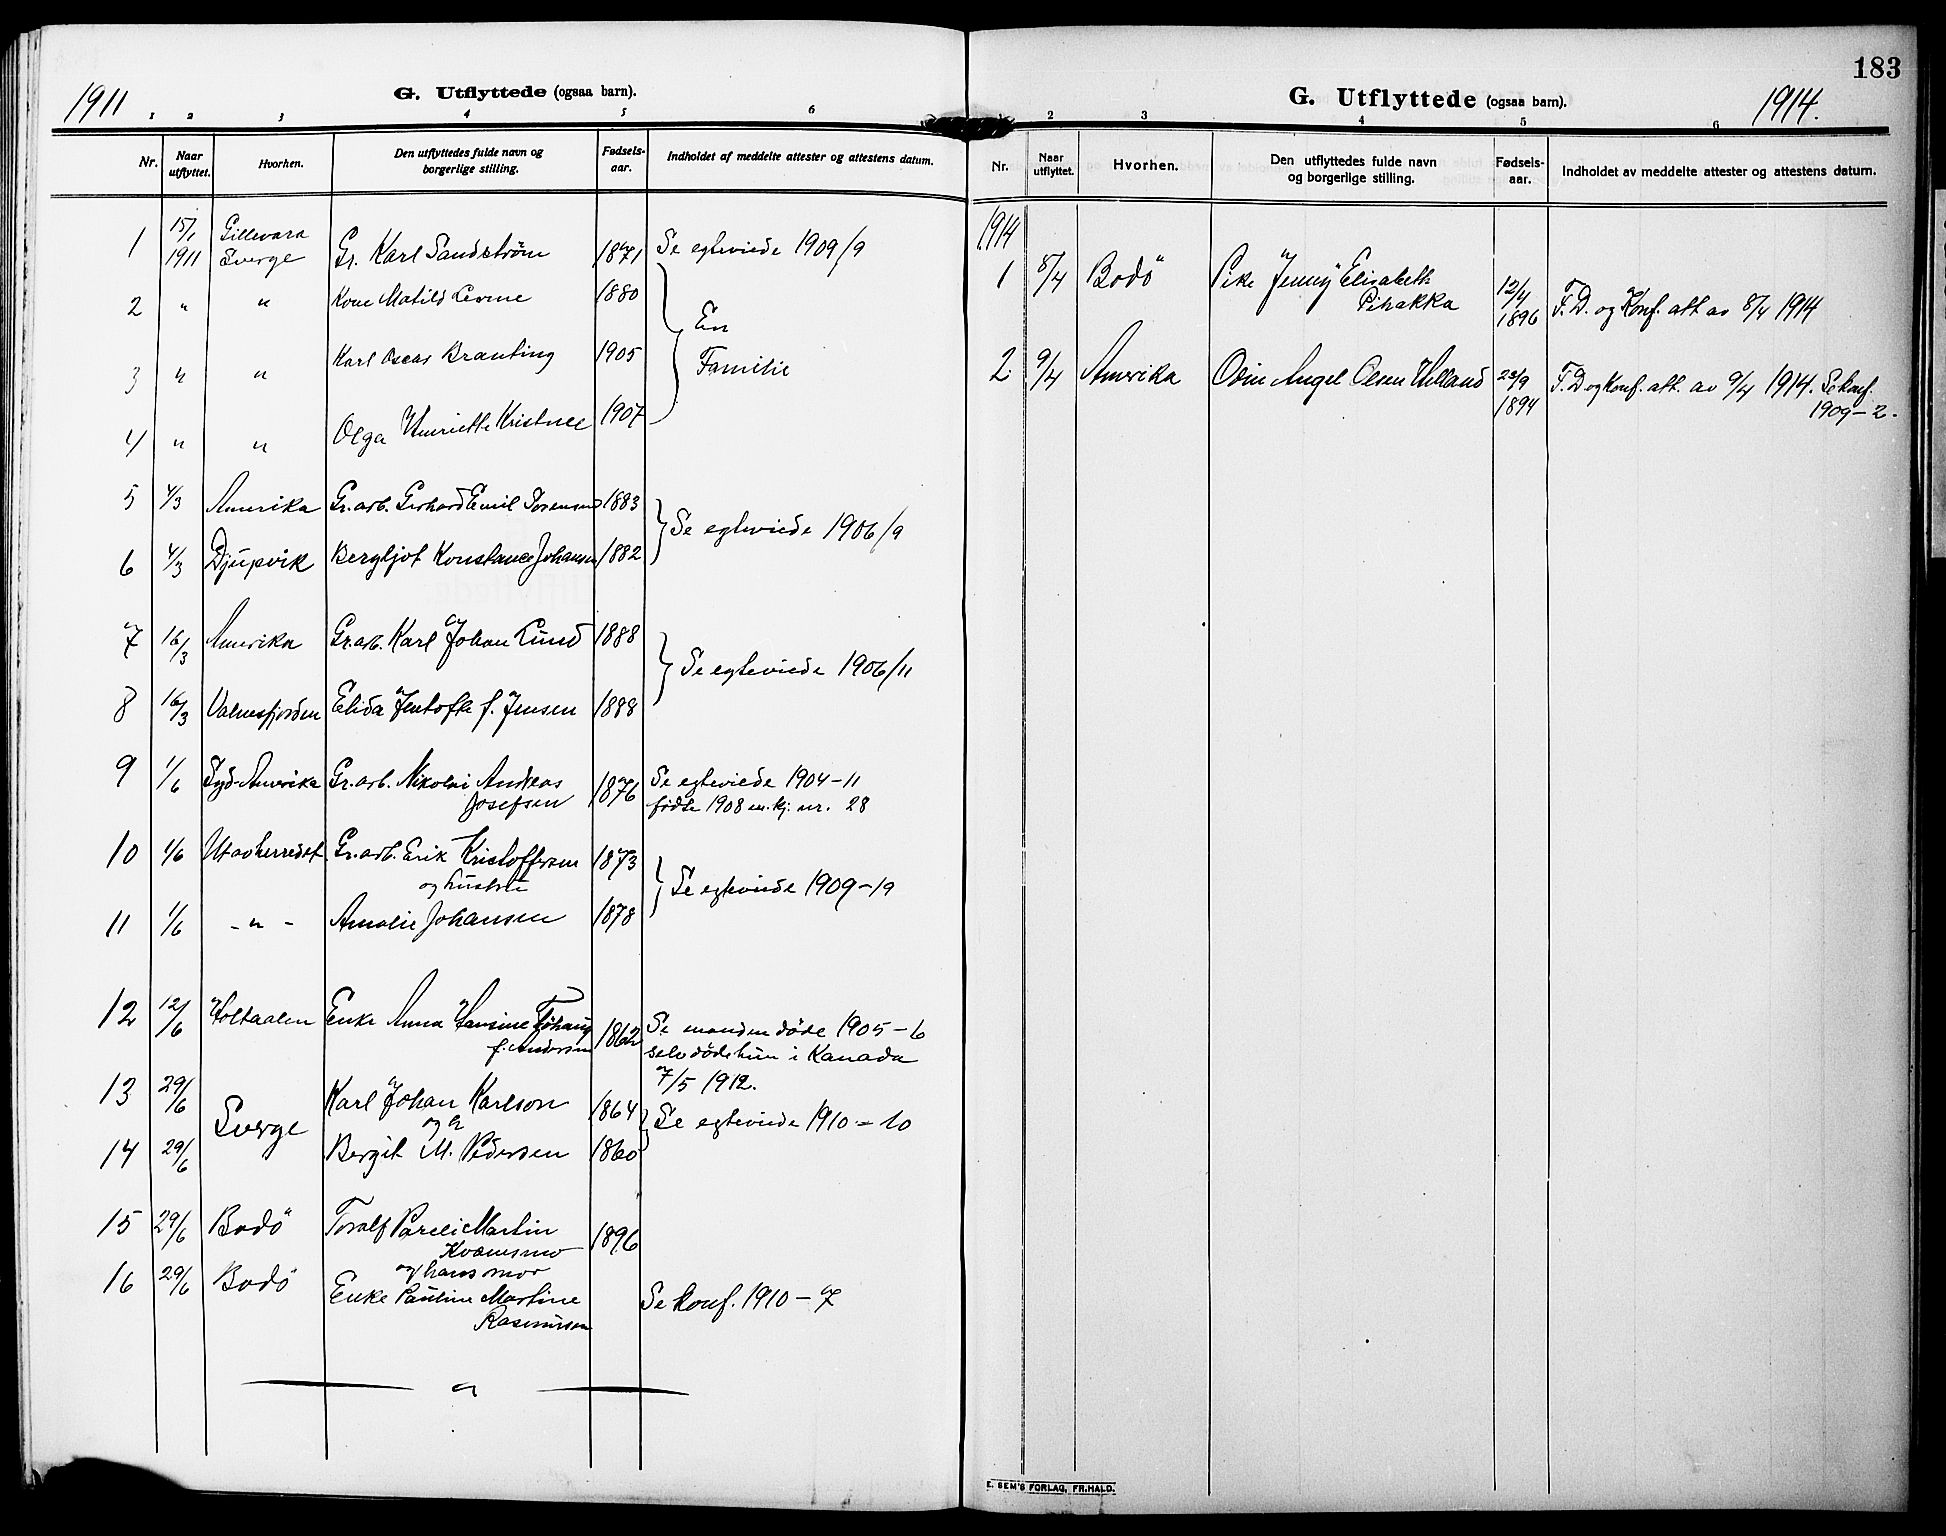 1911
G. Utflyttede (ogsaa barn).
1 2 3 4 5 6
Nr. Naar utflyttet. Hvorhen. Den utflyttedes fulde navn og borgerlige stilling. Fødsels-aar. Indholdet af meddelte attester og attestens datum.
1 15/1 1911 Gillevara Sverge Gr. Karl Sandström 1871 Se egteviede 1909/9
2 " " Kone Matild Levine 1880
En Familie
3 " " Karl Oscar Branting 1905
4 " " Olga Henriette Kristine 1907
5 4/3 Amerika Gr.arb. Gerhard Emil Sörensen 1883
Se egteviede 1906/9
6 4/3 Djupvik Bergljot Konstance Johansen 1882
7 16/3 Amerika Gr.arb. Karl Johan Lund 1888
Se egteviede 1906/11
8 16/3 Valnesfjorden Elida Jentofte f. Jensen 1888
9 1/6 Syd-Amerika Gr.arb. Nikolai Andreas 1876 Se egteviede 1904-11
Josefsen födte 1908 m.kj. nr. 28
10 1/6 Utavherredet Gr.arb. Erik Kristoffersen 1873
og hustru
Se egteviede 1909-19
11 1/6 - " - Amalie Johansen 1878
12 12/6 Holtaalen Enke Anna Hansine 1862 Se manden döde 1905-6
f. Andersen selv döde hun i Kanada
7/5 1912.
13 29/6 Sverge Karl Johan Karlson 1864 Se egteviede 1910-10
og
14 29/6 Bergit M. Pedersen 1860
15 29/6 Bodö Toralf Pareli Martin 1896
Kvænsmo
og hans mor
16 29/6 Bodö Enke Pauline Martine Se konf. 1910-7
Rasmussen
183
G. Utflyttede (ogsaa barn).
1914.
2 3 4 5 6
Nr. Naar utflyttet. Hvorhen. Den utflyttedes fulde navn og borgerlige stilling. Fødsels-aar. Indholdet av meddelte attester og attestens datum.
1914
1 8/4 Bodö Pike Jenny Elisabeth 12/4 1896 F.D. og Konf. att av 8/4 1914
Pihakka
2 9/4 Amerika Odin Angel Olsen Helland 23/9 1894 F.D og Konf. att. av 9/4 1914. Se konf.
1909-2.
E. SEM'S FORLAG, FR.HALD.